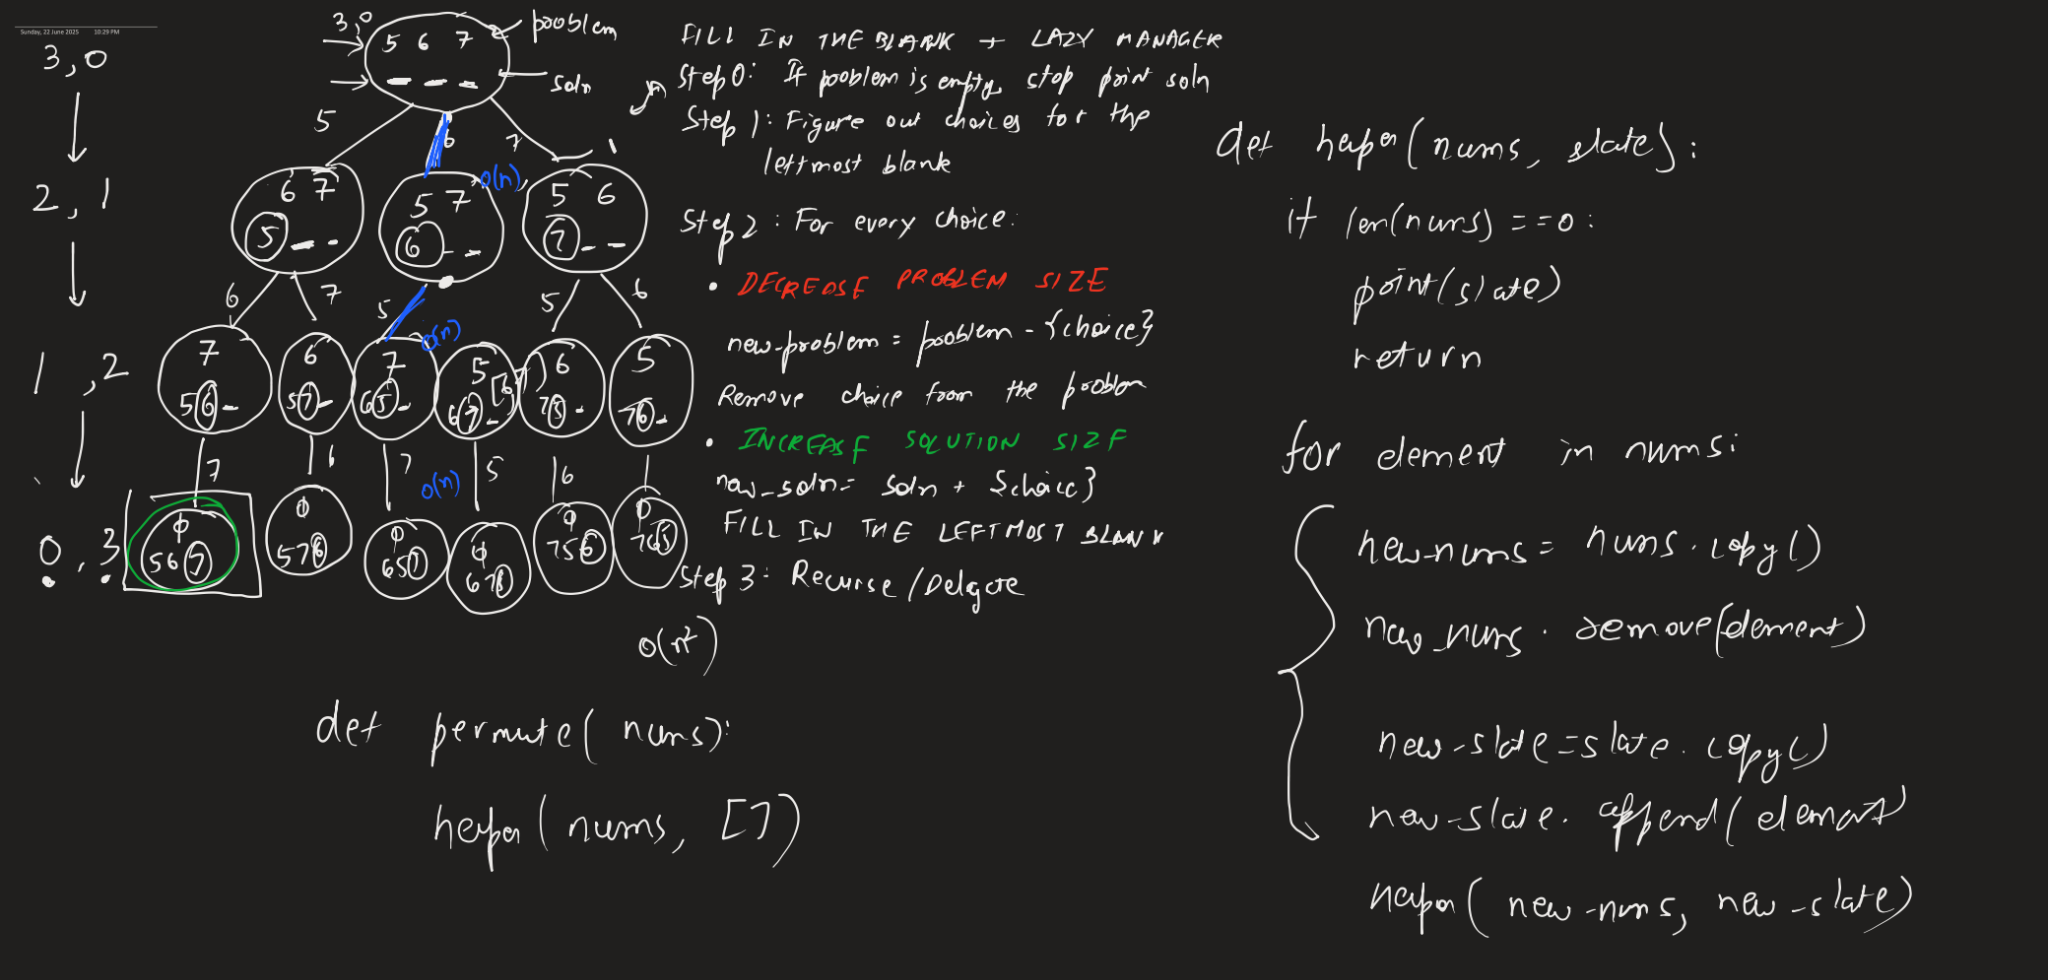 Sunday, 22 June 2025 10:29 PM
3,0
2, 1
1 ,2
0 , 3
3,0
5 6 7
problem
soln
5
6
7
O(n)
6 7
5 _ _
5 7
6 _ _
5 6
7 _ _
6
7
5
O(n)
5
6
7
5 6 _
6
5 7 _
7
6 5 _
5
6 7 _
6
7 5 _
5
7 6 _
7
6
7
O(n)
5
6
φ
5 6 7
φ
5 7 6
φ
6 5 7
φ
6 7 5
φ
7 5 6
φ
7 6 5
O(n²)
def permute( nums):
helper( nums, [])
FILL IN THE BLANK + LAZY MANAGER
Step 0: If problem is empty, stop print soln
Step 1: Figure out choices for the
leftmost blank
Step 2: For every choice:
• DECREASE PROBLEM SIZE
new-problem = problem - {choice}
Remove choice from the problem
• INCREASE SOLUTION SIZE
new_soln= soln + {choice}
FILL IN THE LEFTMOST BLANK
Step 3: Recurse/Delgate
def helper(nums, slate):
if len(nums) ==0:
print(slate)
return
for element in nums:
new-nums= nums.copy()
new_nums. remove(element)
new-slate=slate. copy()
new-slate. append( element)
helper( new-nums, new-slate)